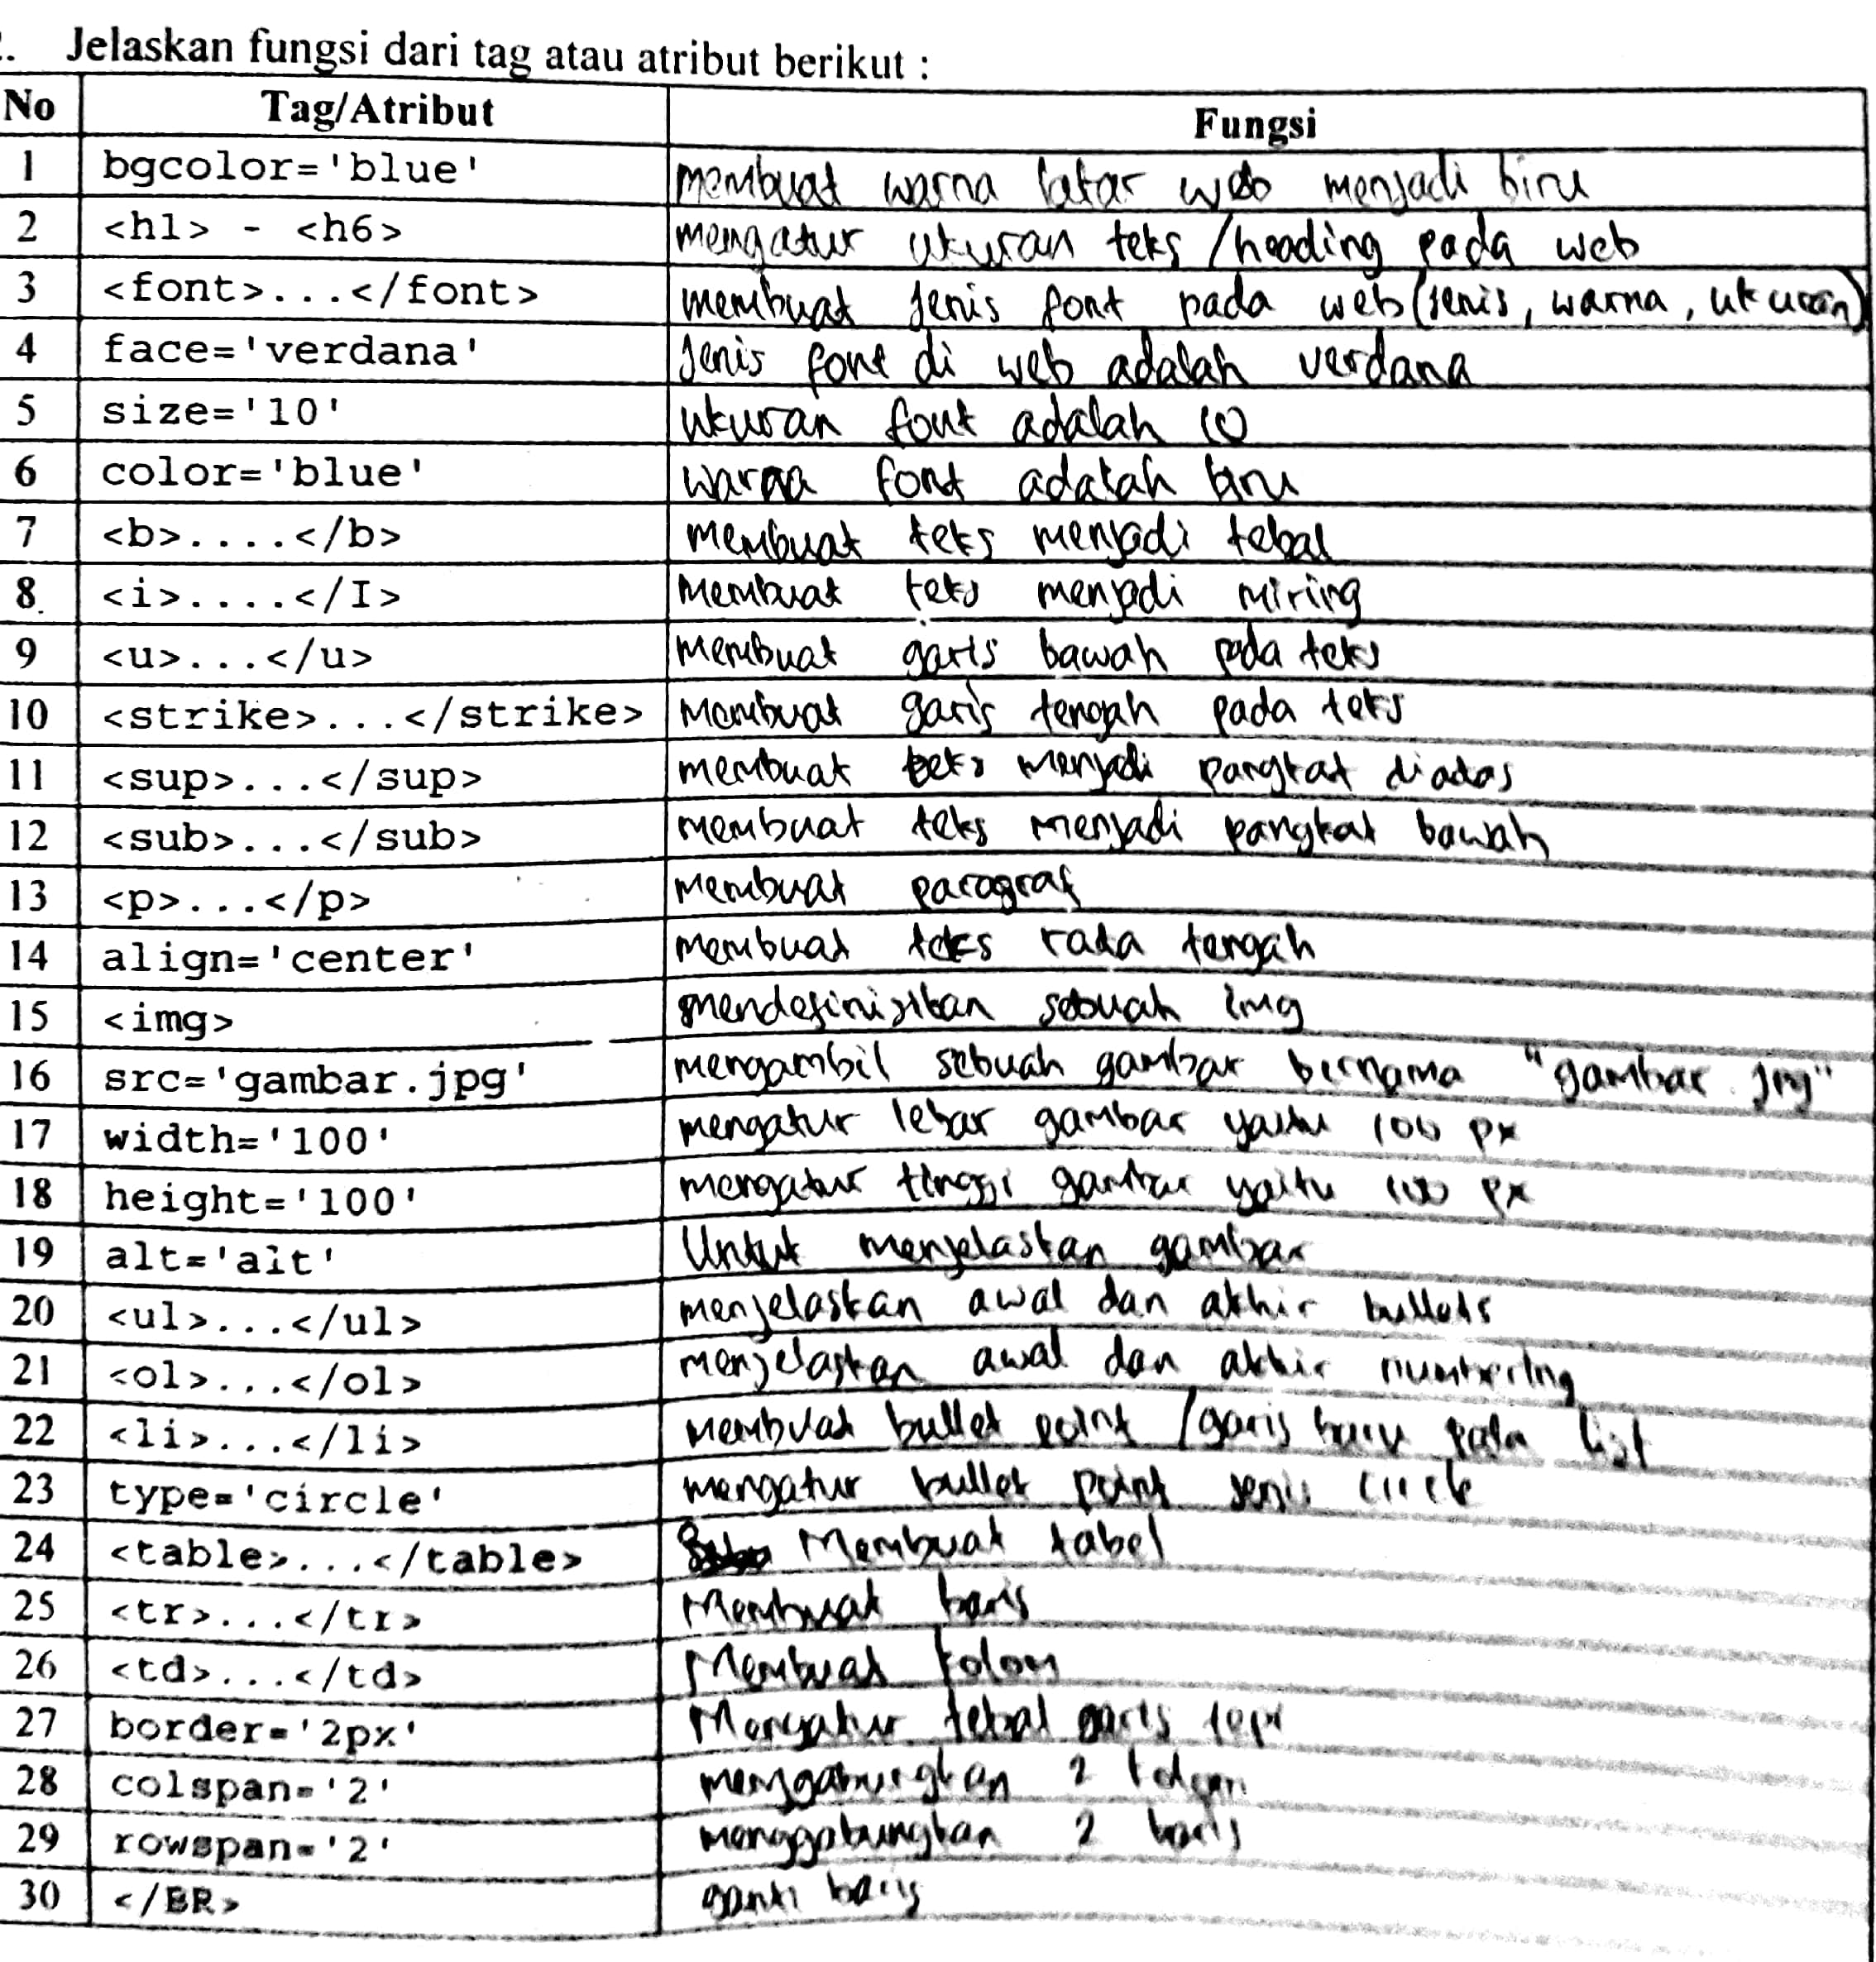 . Jelaskan fungsi dari tag atau atribut berikut :
No Tag/Atribut Fungsi
1 bgcolor='blue' membuat warna latar web menjadi biru
2 <h1> - <h6> mengatur ukuran teks /heading pada web
3 <font>...</font> membuat jenis font pada web (jenis, warna, ukuran)
4 face='verdana' Jenis font di web adalah verdana
5 size='10' ukuran font adalah 10
6 color='blue' warna font adalah biru
7 <b>....</b> membuat teks menjadi tebal
8. <i>....</I> membuat teks menjadi miring
9 <u>...</u> membuat garis bawah pada teks
10 <strike>...</strike> membuat garis tengah pada teks
11 <sup>...</sup> membuat teks menjadi pangkat diatas
12 <sub>...</sub> membuat teks menjadi pangkat bawah
13 <p>...</p> membuat paragraf
14 align='center' membuat teks rata tengah
15 <img> mendefinisikan sebuah img
16 src='gambar.jpg' mengambil sebuah gambar bernama "gambar.jpg"
17 width='100' mengatur lebar gambar yaitu 100 px
18 height='100' mengatur tinggi gambar yaitu 100 px
19 alt='alt' Untuk menjelaskan gambar
20 <ul>...</ul> menjelaskan awal dan akhir bullets
21 <ol>...</ol> menjelaskan awal dan akhir numbering
22 <li>...</li> membuat bullet point /garis baru pada list
23 type='circle' mengatur bullet point jenis circle
24 <table>...</table> Membuat tabel
25 <tr>...</tr> Membuat baris
26 <td>...</td> Membuat kolom
27 border='2px' Mengatur tebal garis
28 colspan='2' menggabungkan 2 kolom
29 rowspan='2' menggabungkan 2 baris
30 </BR> ganti baris